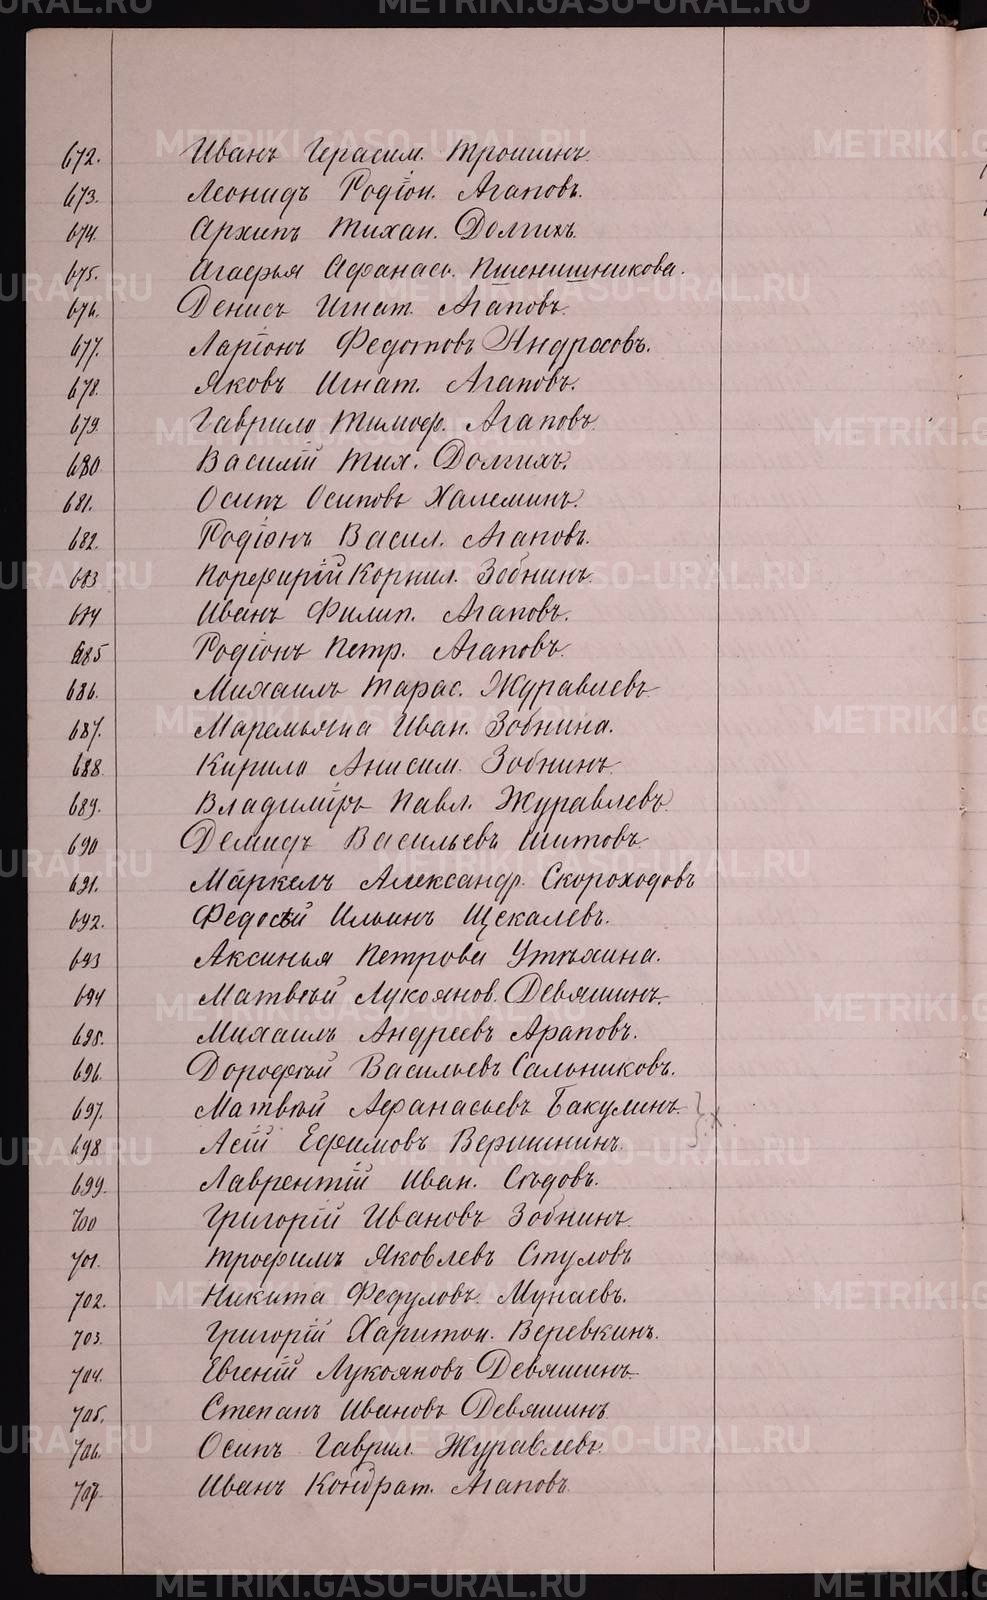 672. Иванъ Герасим. Трошинъ
673. Леонидъ Родіон. Агаповъ.
674. Архипъ Тихан. Долгихъ.
675. Агафья Афанась. Пшенишникова.
676. Денисъ Игнат. Агаповъ.
677. Ларіонъ Федотовъ Андросовъ.
678. Яковъ Игнат. Агаповъ.
679. Гаврило Тимоф. Агаповъ
680. Василій Тих. Долгихъ.
681. Осипъ Осиповъ Халеминъ.
682. Родіонъ Васил. Агаповъ.
683 Порфирій Корнил. Зобнинъ.
684 Иванъ Филип. Агаповъ.
685 Родіонъ Петр. Агаповъ.
686. Михаилъ Тарас. Журавлевъ
687. Маремьяна Иван. Зобнина.
688. Кирило Анисим. Зобнинъ
689. Владиміръ Павл. Журавлевъ
690 Демидъ Васильевъ Шитовъ
691. Маркелъ Александр. Скороходовъ
692. Федосѣй Ильинъ Щекалевъ.
693 Аксинья Петрова Утѣхина.
694 Матвѣй Лукоянов. Девяшинъ
695. Михаилъ Андреевъ Араповъ.
696. Дорофѣй Васильевъ Сальниковъ.
697. Матвѣй Афанасьевъ Бакулинъ
698 Асій Ефимовъ Вершининъ.
699. Лаврентій Иван. Сѣдовъ.
700 Григорій Ивановъ Зобнинъ
701. Трофимъ Яковлевъ Стуловъ
702. Никита Федуловъ Мунаевъ.
703. Григорій Харитон. Веревкинъ.
704. Евгеній Лукояновъ Девяшинъ
705. Степанъ Ивановъ Девяшинъ
706. Осипъ Гаврил. Журавлевъ
707. Иванъ Кондрат. Агаповъ
METRIKI.GASO-URAL.RU